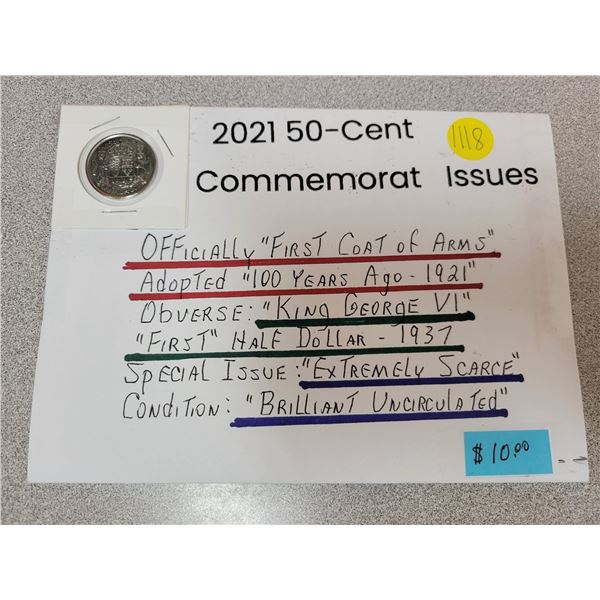 2021 50-Cent
1118
Commemorat Issues
OFFicially "First Coat of Arms"
Adopted "100 Years Ago - 1921"
Obverse: "King George VI"
"First" Half Dollar - 1937
Special Issue: "Extremely Scarce"
Condition: "Brilliant Uncirculated"
$10.00